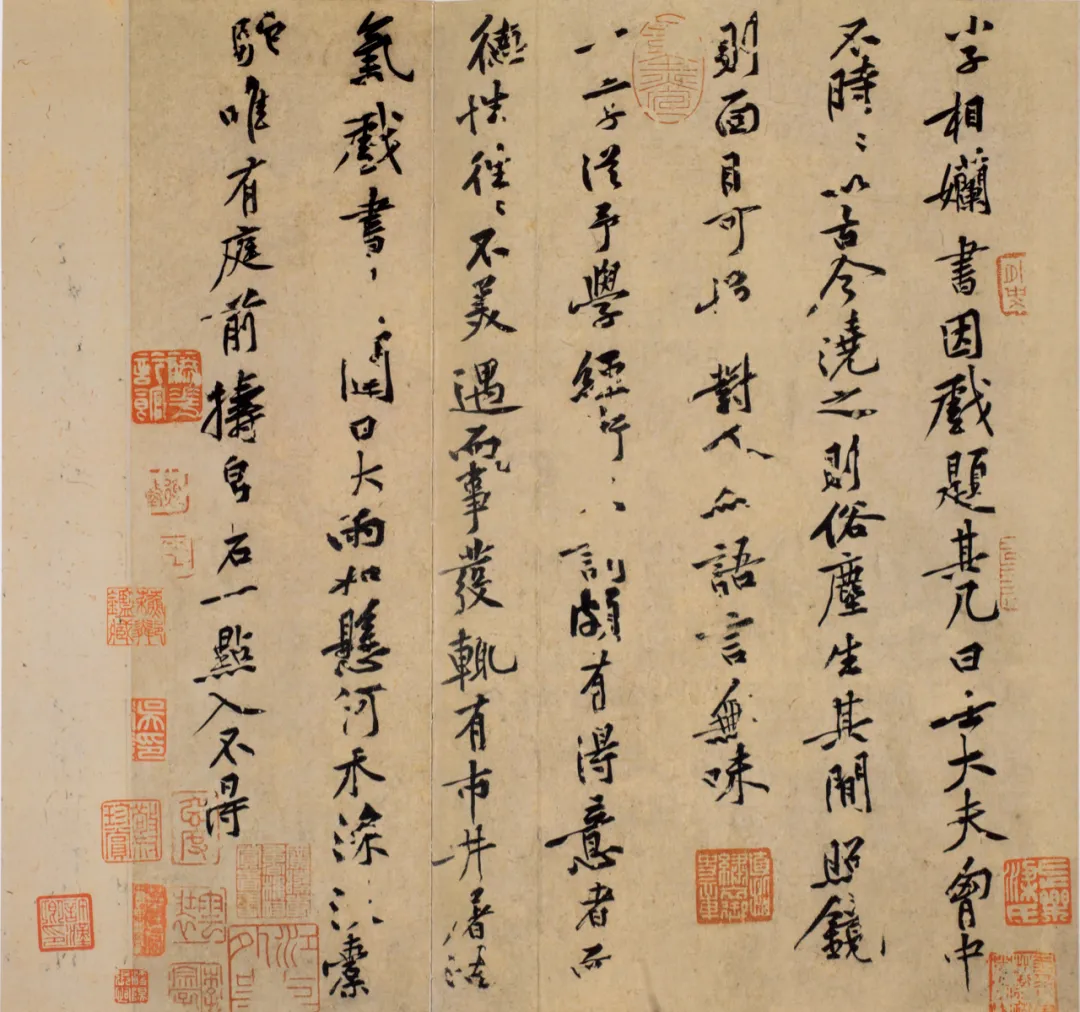 小子相嬾書因戲題其几曰士大夫胷中
不時〻以古今澆之則俗塵生其間照鏡
則面目可憎對人亦語言無味
二子從予學經訓頗有得意者而
德性往〻不美遇事發輒有市井屠沽
氣戲書日大雨如懸河水深沒橐
駝唯有庭前擣帛石一點入不得